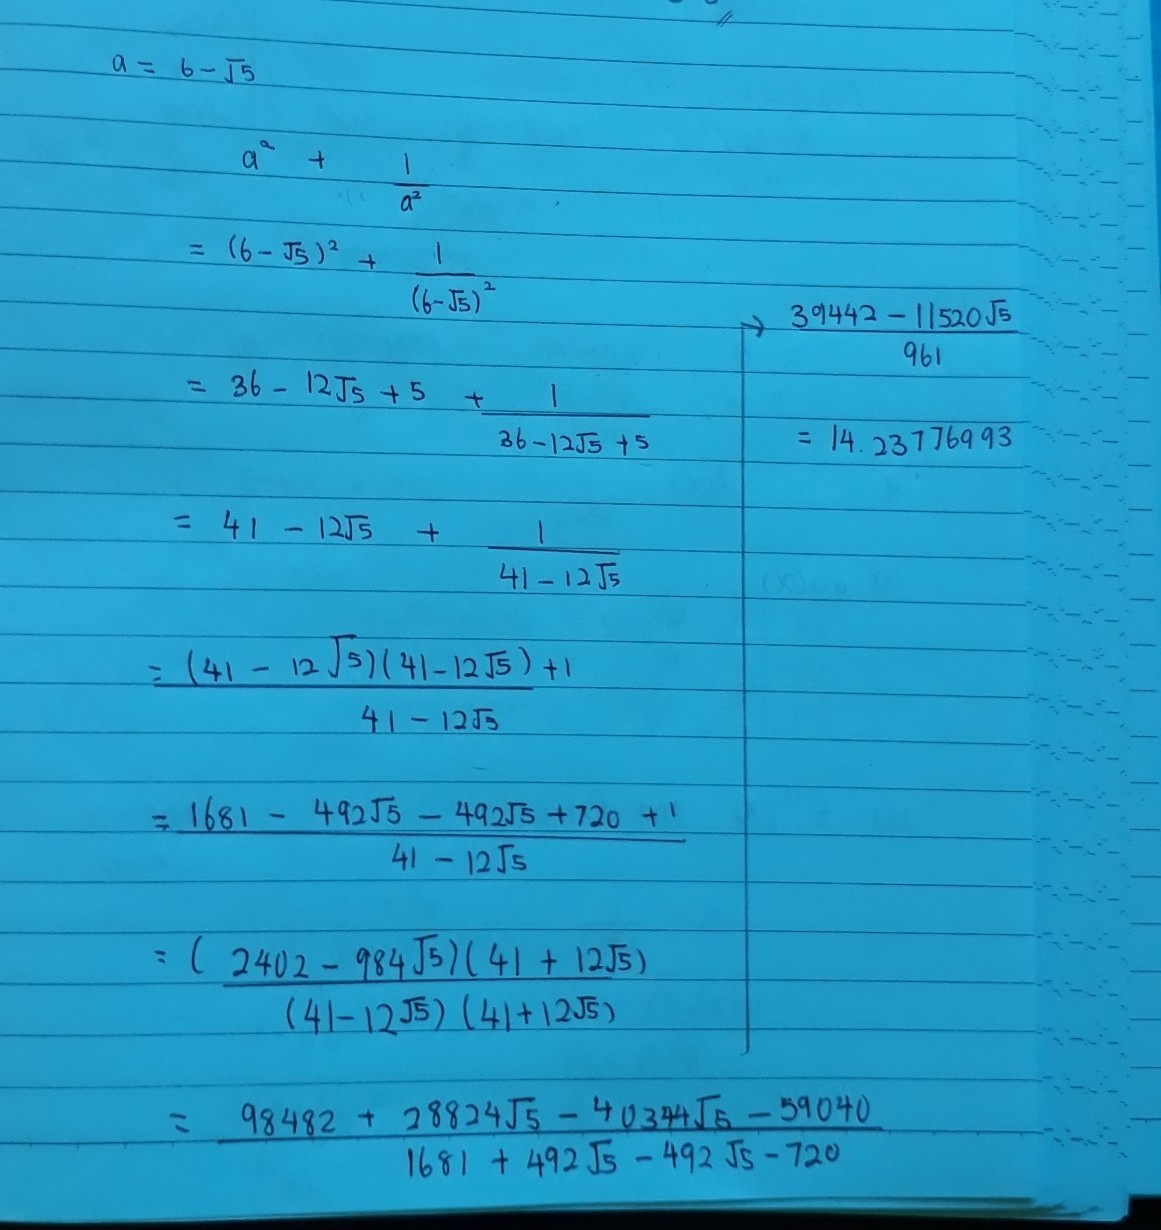 a = 6 - √5
a² + 1/a²
= (6 - √5)² + 1/(6-√5)²
= 36 - 12√5 + 5 + 1/(36-12√5+5)
= 41 - 12√5 + 1/(41-12√5)
= ((41 - 12√5)(41-12√5) + 1)/(41-12√5)
= (1681 - 492√5 - 492√5 + 720 + 1)/(41-12√5)
= ((2402 - 984√5)(41 + 12√5))/((41-12√5)(41+12√5))
= (98482 + 28824√5 - 40344√5 - 59040)/(1681 + 492√5 - 492√5 - 720)
→ (39442 - 11520√5)/961
= 14.23776993